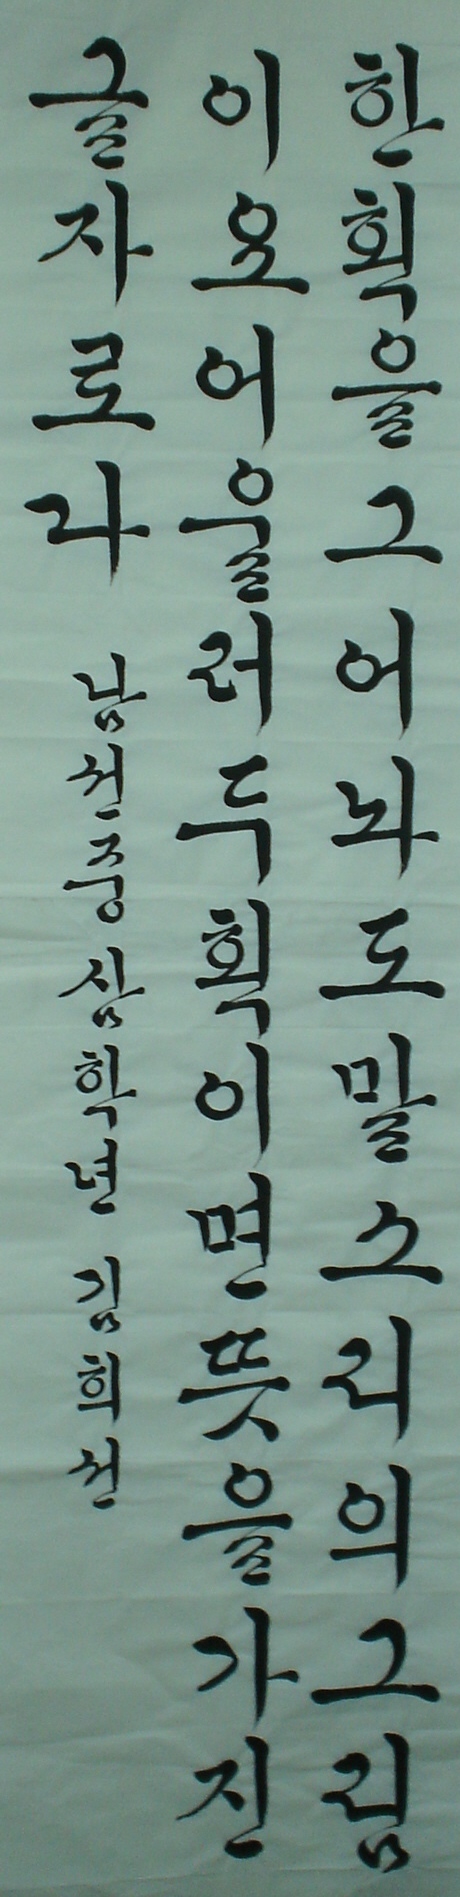 한획을그어놔도말소리의그림
이오어울러두획이면뜻을가진
글자로라 남선중삼학년 김희선